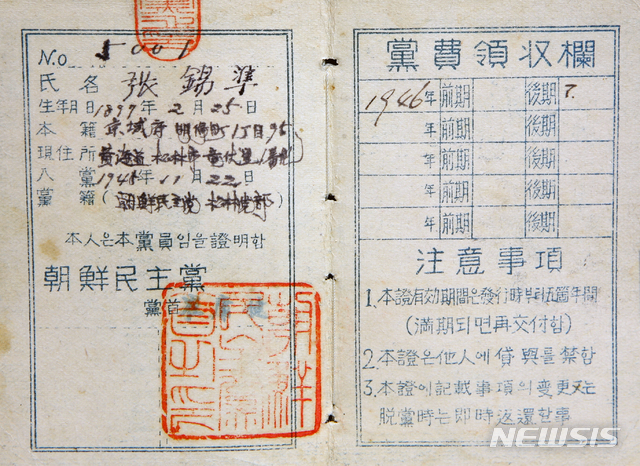 No. 5001
氏名 張錫準
生年月日 1899年 2月 25日
本籍 京城府 町 丁目 95
現住所 黃海道 松林市
入黨 194 年 11月 22日
黨籍 (朝鮮民主党 松林党部)
本人은本黨員임을證明함
朝鮮民主黨
黨首
黨費領収欄
1946年 前期 後期 7.
年 前期 後期
年 前期 後期
年 前期 後期
年 前期 後期
注意事項
1. 本證有効期間은發行時부터五箇年間
(滿期되면再交付함)
2. 本證은他人에貸與를禁함
3. 本證에記載事項의変更又는
脫黨時는即時返還할事
NEWSIS